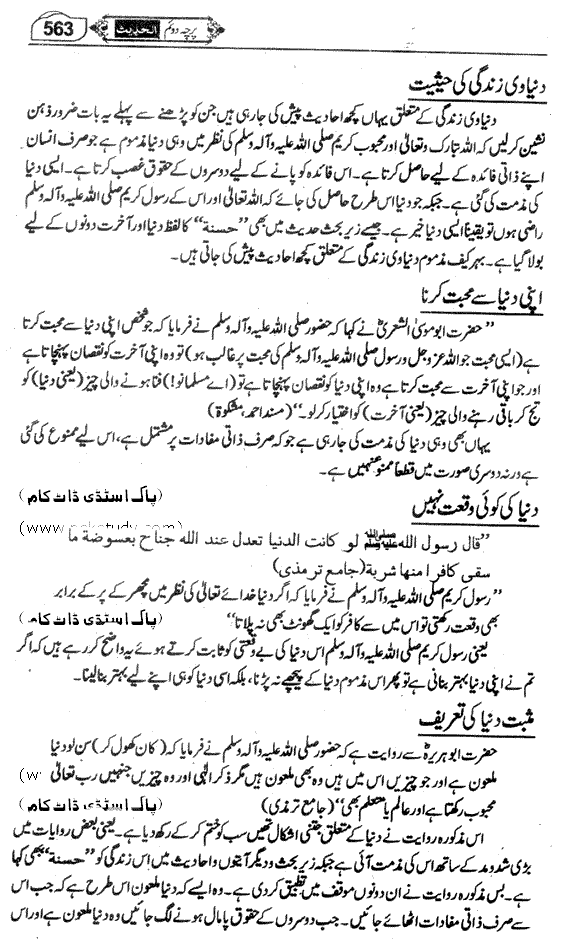 563 الحدیث پرچہ دوئم
دنیاوی زندگی کی حیثیت
دنیاوی زندگی کے متعلق یہاں کچھ احادیث پیش کی جارہی ہیں جن کو پڑھنے سے پہلے یہ بات ضرور ذہن
نشین کرلیں کہ اللہ تبارک وتعالیٰ اور محبوب کریم صلی اللہ علیہ وآلہ وسلم کی نظر میں وہی دنیا مذموم ہے جو صرف انسان
اپنے ذاتی فائدہ کے لیے حاصل کرتا ہے۔ اس فائدہ کو پانے کے لیے دوسروں کے حقوق غصب کرتا ہے۔ ایسی دنیا
کی مذمت کی گئی ہے۔ جبکہ جو دنیا اس طرح حاصل کی جائے کہ اللہ تعالیٰ اور اس کے رسول کریم صلی اللہ علیہ وآلہ وسلم
راضی ہوں تو یقیناً ایسی دنیا خیر ہے۔ جیسے زیر بحث حدیث میں بھی ”حسنۃ“ کا لفظ دنیا اور آخرت دونوں کے لیے
بولا گیا ہے۔ بہر کیف مذموم دنیاوی زندگی کے متعلق کچھ احادیث پیش کی جاتی ہیں۔
اپنی دنیا سے محبت کرنا
”حضرت ابو موسیٰ اشعریؓ نے کہا کہ حضور صلی اللہ علیہ وآلہ وسلم نے فرمایا کہ جو شخص اپنی دنیا سے محبت کرتا
ہے (ایسی محبت جو اللہ عزوجل ورسول صلی اللہ علیہ وآلہ وسلم کی محبت پر غالب ہو) تو وہ اپنی آخرت کو نقصان پہنچاتا ہے
اور جو اپنی آخرت سے محبت کرتا ہے وہ اپنی دنیا کو نقصان پہنچاتا ہے تو (اے مسلمانو!) فنا ہونے والی چیز (یعنی دنیا) کو
تج کر باقی رہنے والی چیز (یعنی آخرت) کو اختیار کرلو۔“ (مسند احمد، مشکوٰۃ)
یہاں بھی وہی دنیا کی مذمت کی جارہی ہے جو کہ صرف ذاتی مفادات پر مشتمل ہے، اس لیے ممنوع کی گئی
ہے ورنہ دوسری صورت میں قطعاً ممنوع نہیں ہے۔
پاک اسٹڈی ڈاٹ کام)
دنیا کی کوئی وقعت نہیں
(www.pakstudy.com)
”قال رسول اللہ ﷺ لو کانت الدنیا تعدل عند اللہ جناح بعسوضة ما
سقی کافرا منها شربة (جامع ترمذی)
”رسول کریم صلی اللہ علیہ وآلہ وسلم نے فرمایا کہ اگر دنیا خدائے تعالیٰ کی نظر میں مچھر کے پر کے برابر
بھی وقعت رکھتی تو اس میں سے کافر کو ایک گھونٹ بھی نہ پلاتا“
پاک اسٹڈی ڈاٹ کام)
یعنی رسول کریم صلی اللہ علیہ وآلہ وسلم اس دنیا کی بے وقعتی کو ثابت کرتے ہوئے یہ واضح کر رہے ہیں کہ اگر
تم نے اپنی دنیا بہتر بنانی ہے تو پھر اس مذموم دنیا کے پیچھے نہ پڑنا، بلکہ اسی دنیا کو ہی اپنے لیے بہتر بنالینا۔
مثبت دنیا کی تعریف
حضرت ابوہریرہؓ سے روایت ہے کہ حضور صلی اللہ علیہ وآلہ وسلم نے فرمایا کہ (کان کھول کر) سن لو دنیا
ملعون ہے اور جو چیزیں اس میں ہیں وہ بھی ملعون ہیں مگر ذکر الٰہی اور وہ چیزیں جنہیں رب تعالیٰ
(w
محبوب رکھتا ہے اور عالم یا متعلم بھی“ (جامع ترمذی)
پاک اسٹڈی ڈاٹ کام)
اس مذکورہ روایت نے دنیا کے متعلق جتنی اشکال تھیں سب کو ختم کر کے رکھ دیا ہے۔ یعنی بعض روایات میں
بڑی شدومد کے ساتھ اس کی مذمت آئی ہے جبکہ زیر بحث و دیگر آیتوں و احادیث میں اس زندگی کو ”حسنۃ“ بھی کہا
ہے۔ بس مذکورہ روایت نے ان دونوں موقف میں تطبیق کردی ہے۔ وہ ایسے کہ دنیا ملعون اس طرح ہے کہ جب اس
سے صرف ذاتی مفادات اٹھائے جائیں۔ جب دوسروں کے حقوق پامال ہونے لگ جائیں وہ دنیا ملعون ہے اور اس